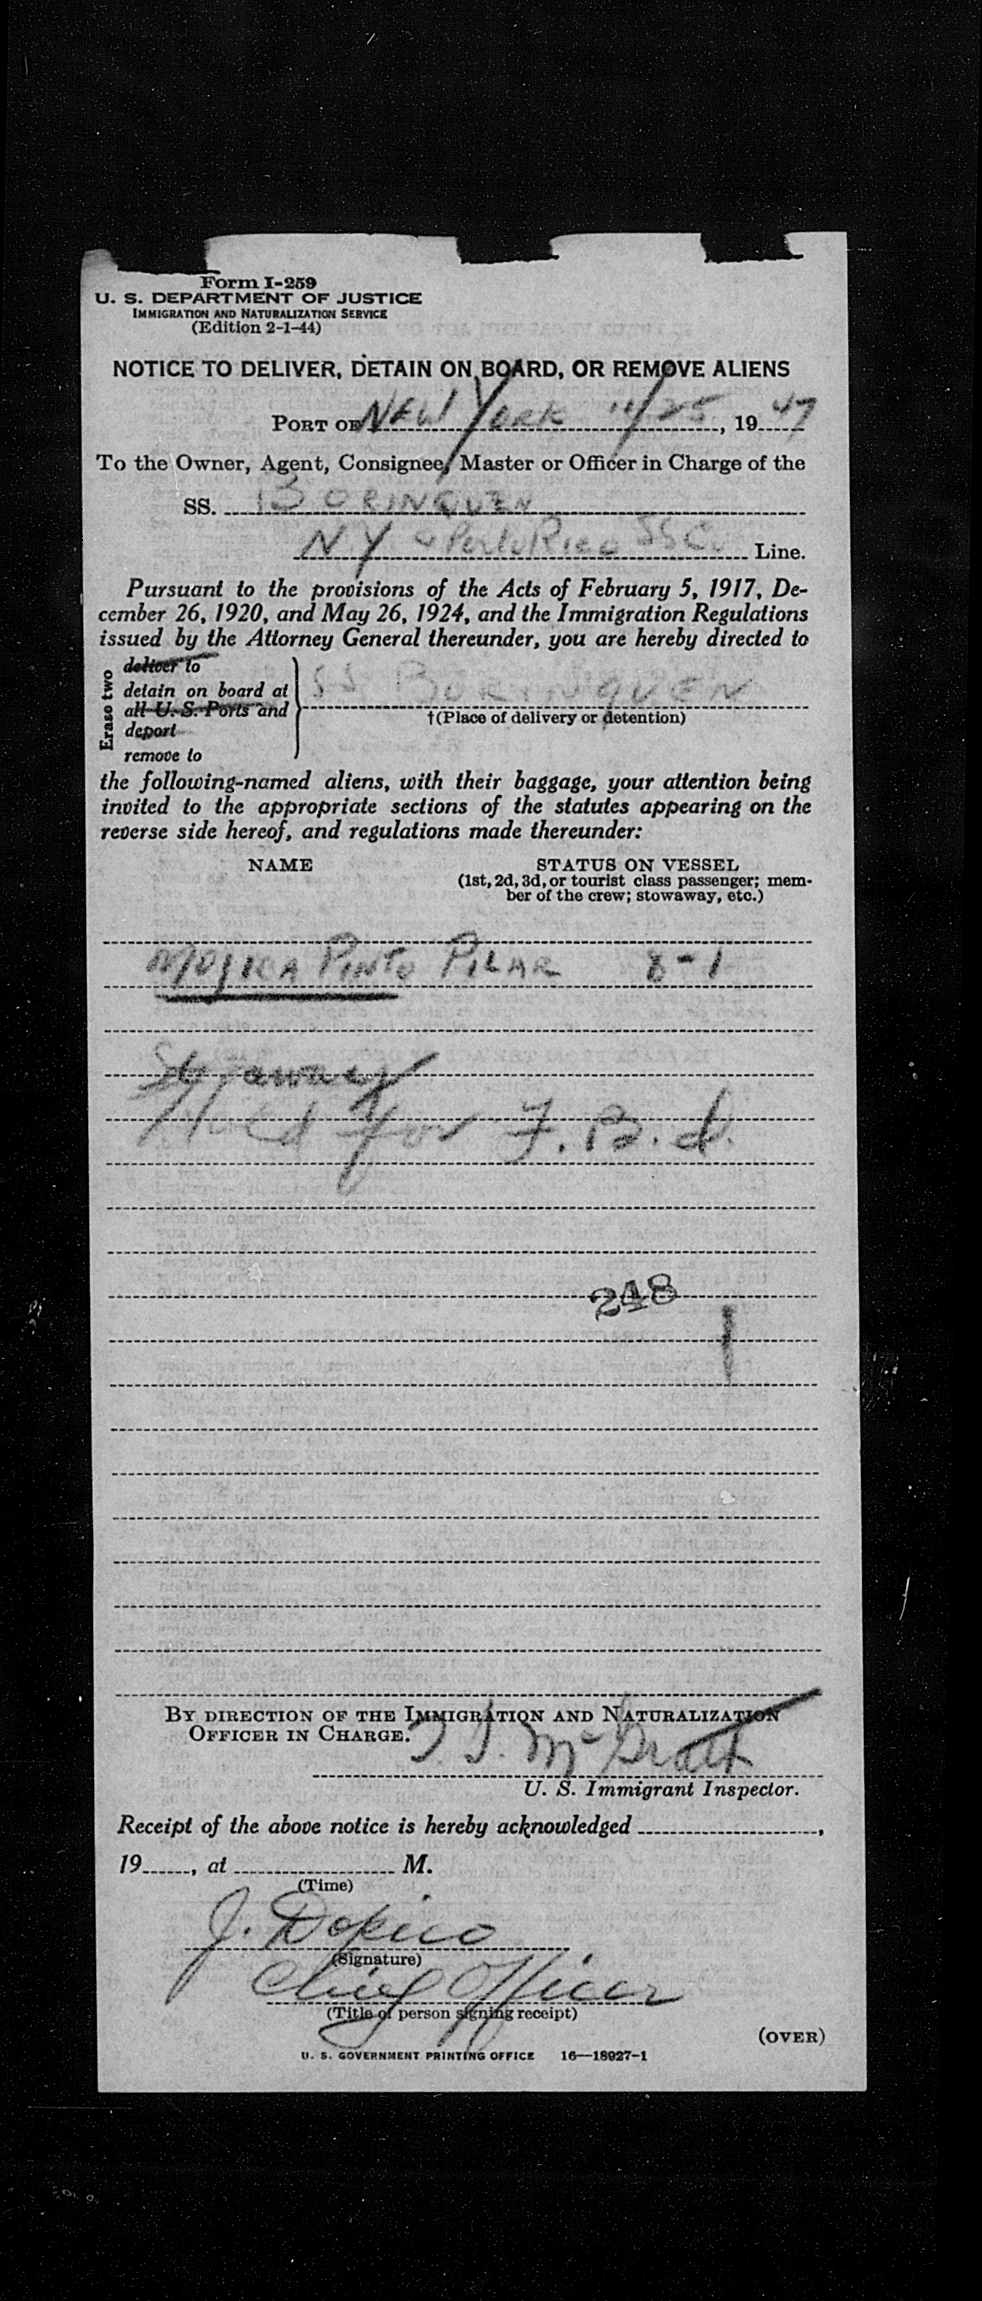 Form I-259
U. S. DEPARTMENT OF JUSTICE
IMMIGRATION AND NATURALIZATION SERVICE
(Edition 2-1-44)
NOTICE TO DELIVER, DETAIN ON BOARD, OR REMOVE ALIENS
PORT OF NEW YORK 11/25, 1947
To the Owner, Agent, Consignee, Master or Officer in Charge of the
SS. BORINQUEN
NY & Porto Rico SS Co Line.
Pursuant to the provisions of the Acts of February 5, 1917, De-
cember 26, 1920, and May 26, 1924, and the Immigration Regulations
issued by the Attorney General thereunder, you are hereby directed to
Erase two
deliver to
detain on board at
all U. S. Ports and
deport
remove to
SS BORINQUEN
†(Place of delivery or detention)
the following-named aliens, with their baggage, your attention being
invited to the appropriate sections of the statutes appearing on the
reverse side hereof, and regulations made thereunder:
NAME
STATUS ON VESSEL
(1st, 2d, 3d, or tourist class passenger; mem-
ber of the crew; stowaway, etc.)
MOJICA PINTO PILAR 8-1
Stowaway
Held for F.B.I.
248
BY DIRECTION OF THE IMMIGRATION AND NATURALIZATION
OFFICER IN CHARGE.
McGrath
U. S. Immigrant Inspector.
Receipt of the above notice is hereby acknowledged ,
19 , at M.
(Time)
J. Dopico
(Signature)
Chief Officer
(Title of person signing receipt)
(OVER)
U. S. GOVERNMENT PRINTING OFFICE 16—18927-1